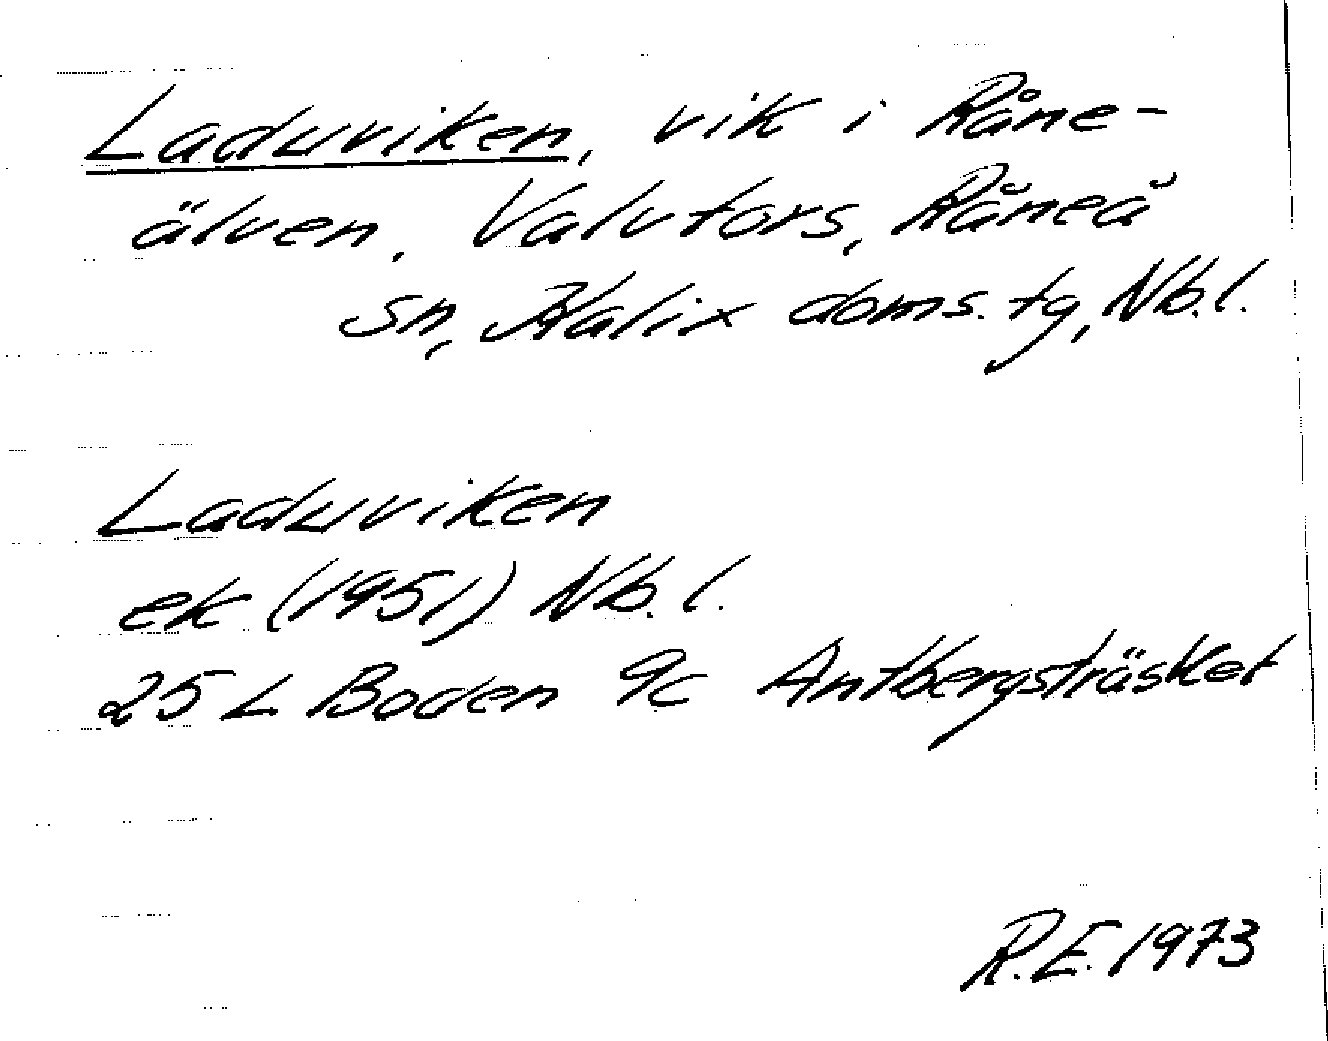 Laduviken, vik i Råne-
älven, Valvfors, Råneå
sn, Kalix doms. tg, Nb.l.
Laduviken
ek (1951) Nb.l.
25 L Boden 9c Antbergsträsket
R.E. 1973